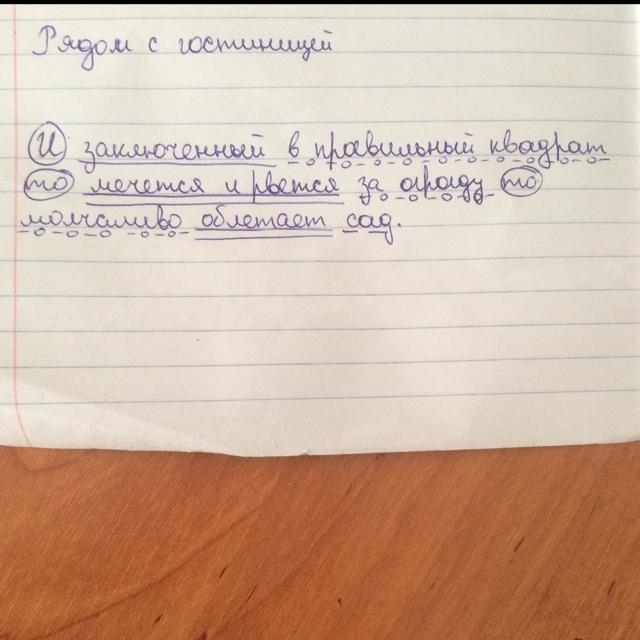 Рядом с гостиницей
И заключенный в правильный квадрат
то мечется и рвется за ограду то
молчаливо облетает сад.